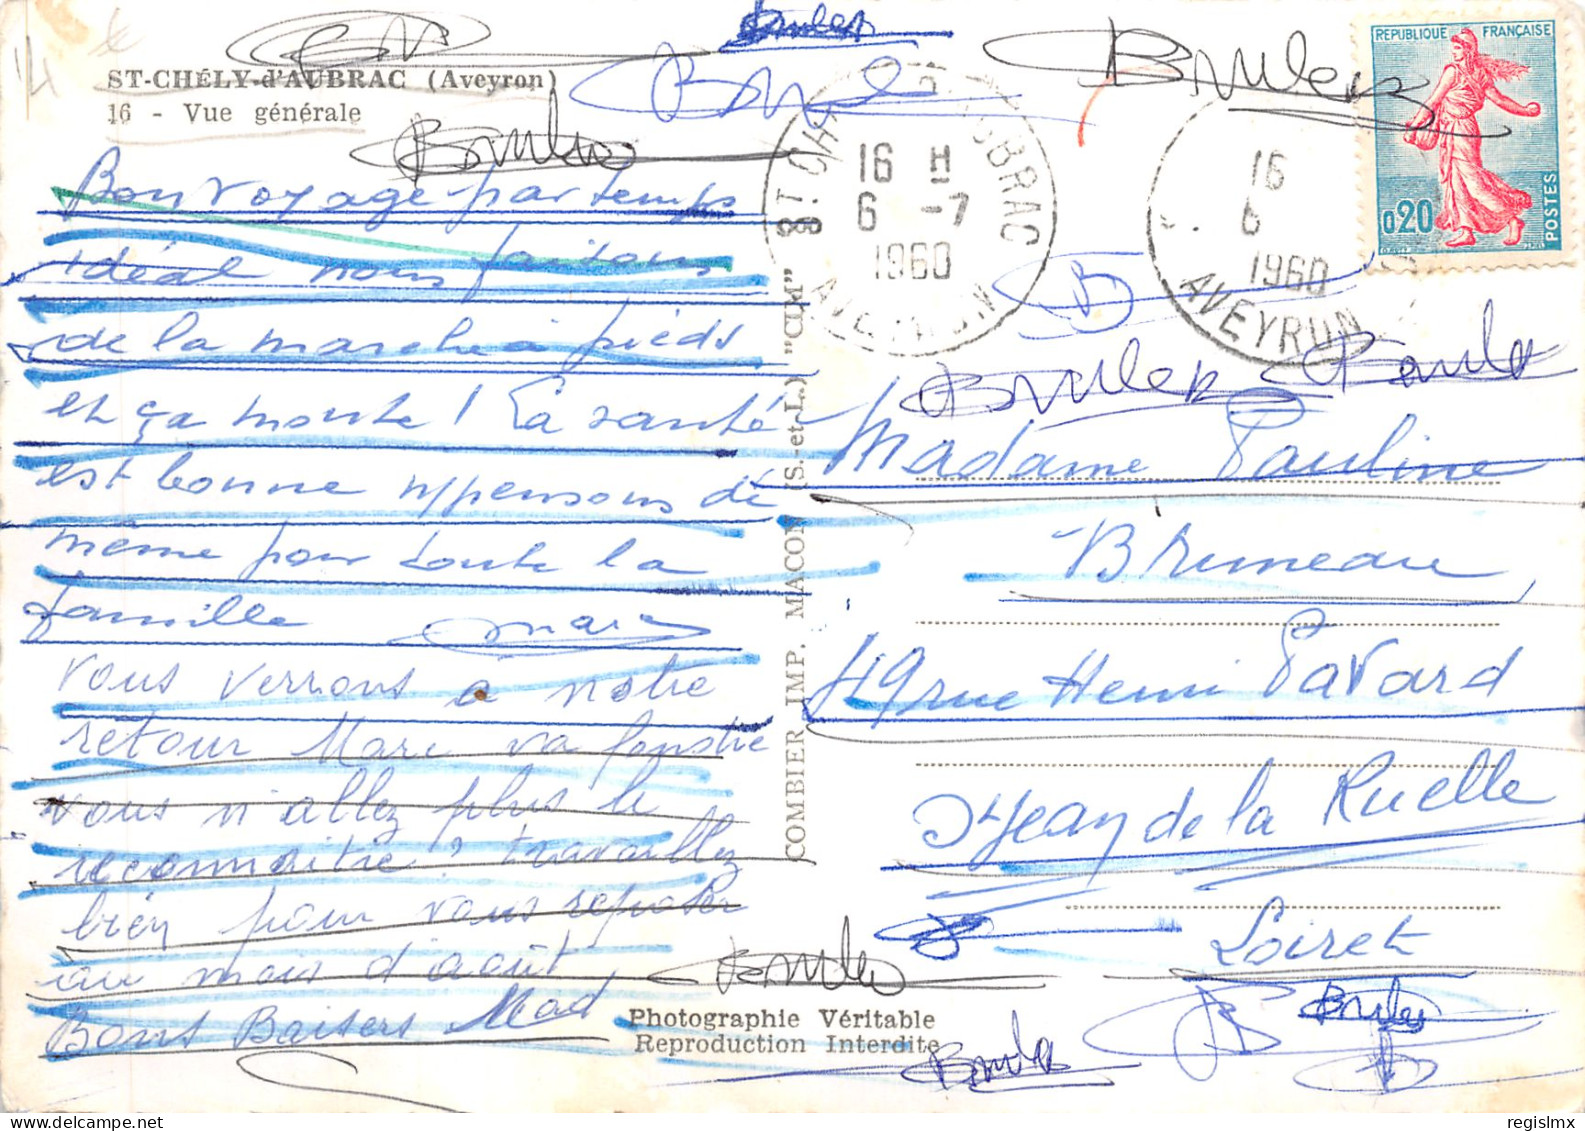 ST-CHÉLY-d'AUBRAC (Aveyron)
16 - Vue générale
Bon voyage par temps
idéal nous faisons
de la marche à pieds
et ça monte ! La santé
est bonne n/pensons de
même pour toute la
famille Marc
vous verrons à notre
retour Marc va
vous n'allez plus le
reconnaître ? travaillez
bien pour vous reposer
au mois d'août
Bons Baisers Mad
COMBIER IMP. MACON (S.-et-L.) "CIM"
REPUBLIQUE FRANÇAISE
0,20
POSTES
16 H
6 -7
1960
AUBRAC
16
6
1960
AVEYRON
Madame Pauline
Bruneau
49 rue Henri Pavard
St Jean de la Ruelle
Loiret
Photographie Véritable
Reproduction Interdite
© regislmx